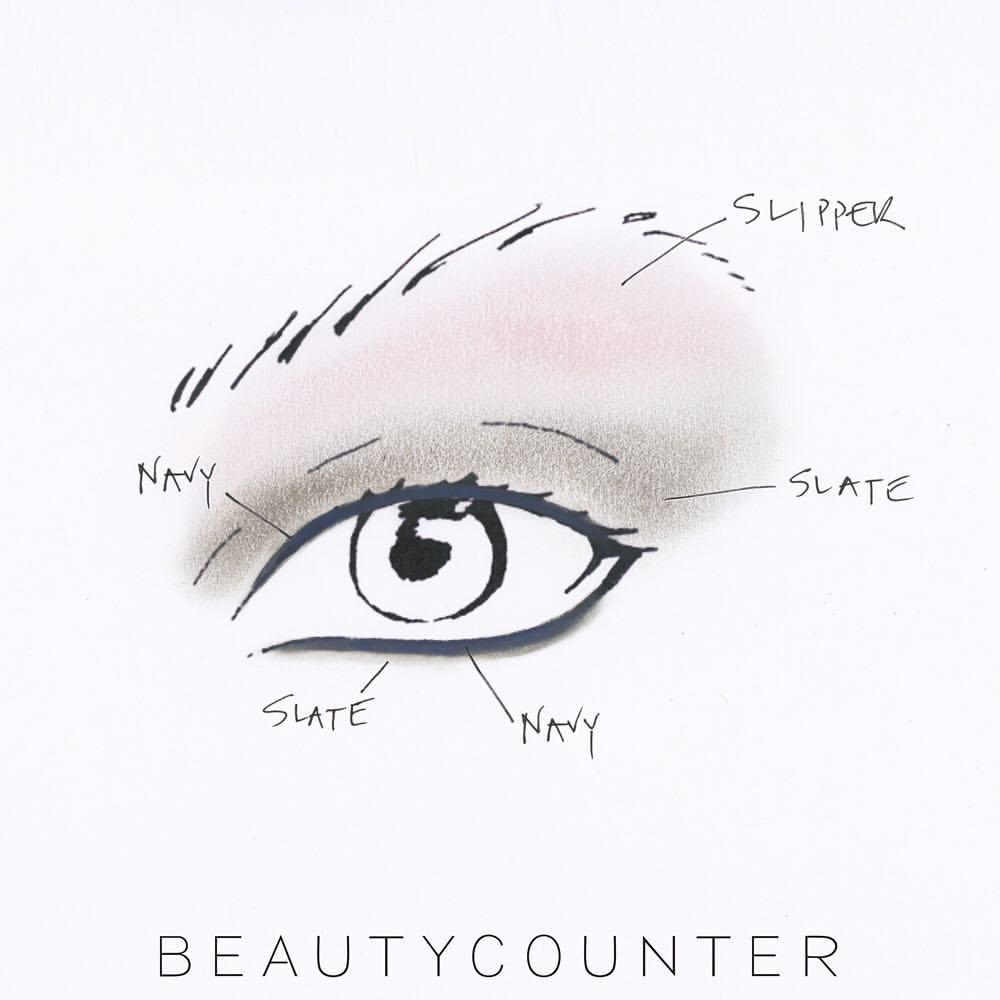 SLIPPER
NAVY
SLATE
SLATE
NAVY
BEAUTYCOUNTER